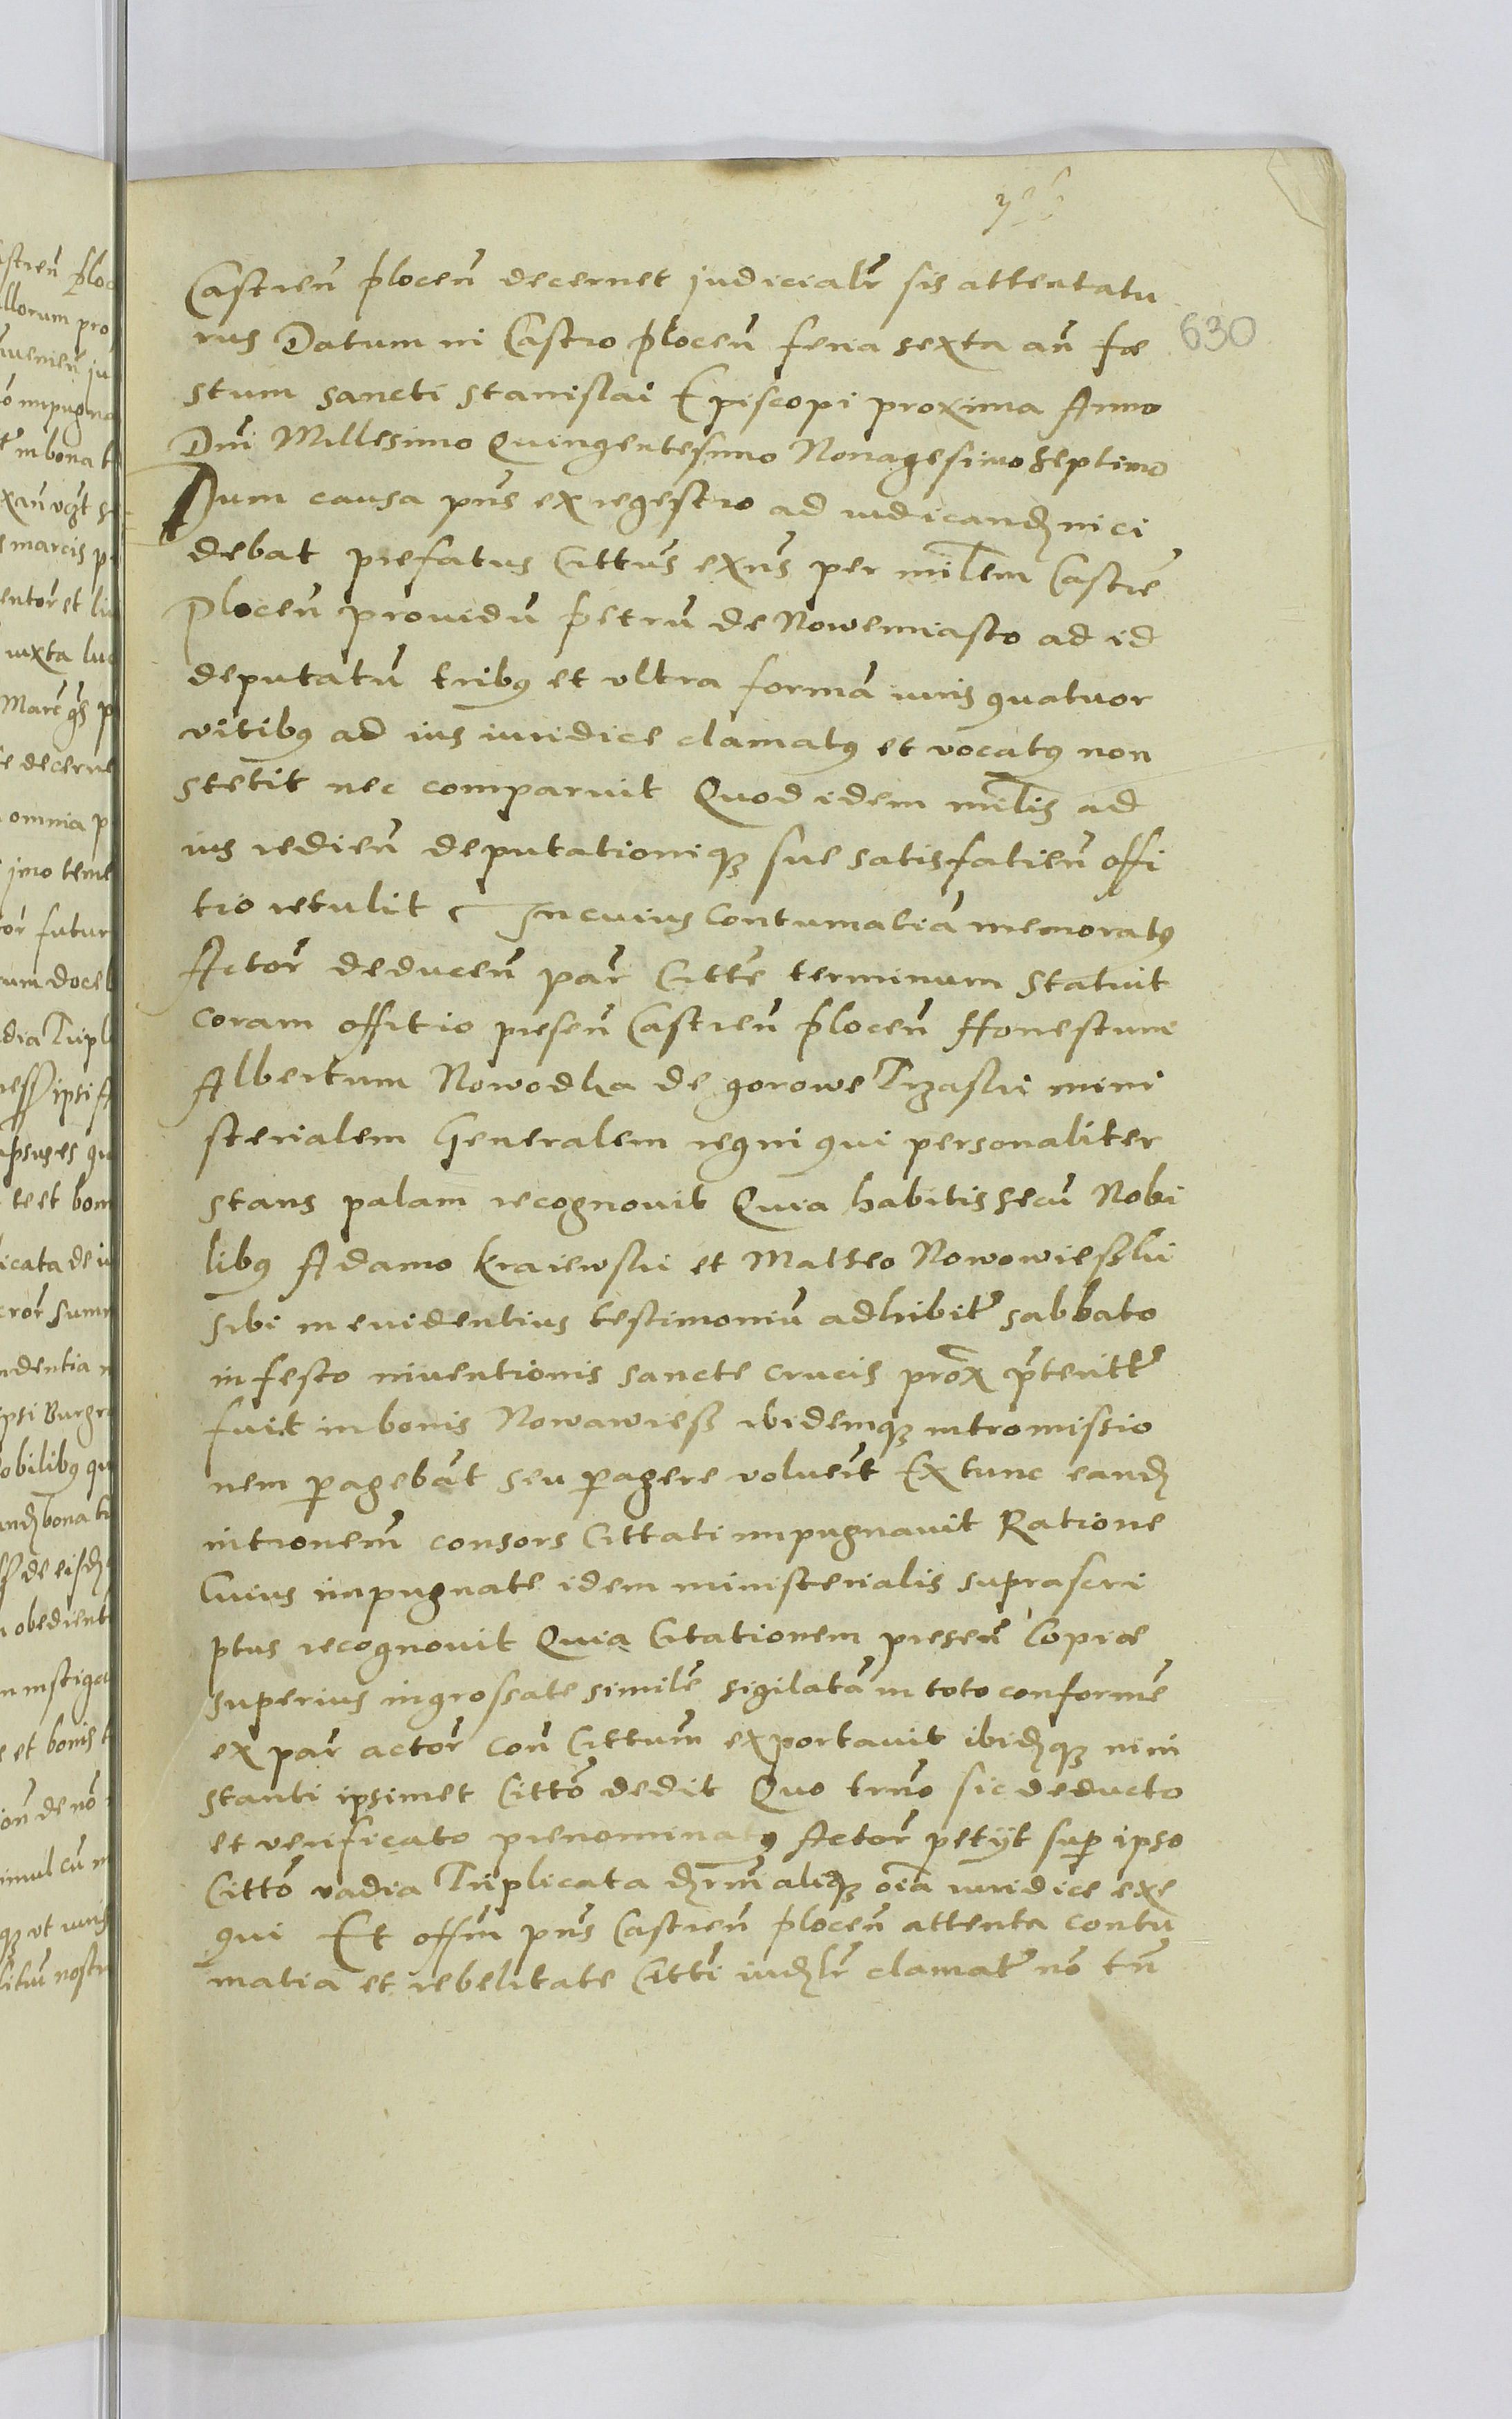 630
Castren̄ plocen̄ decernet judicialr̄ sis attentatu
rus Datum in Castro plocen̄ feria sexta an̄ fæ
stum sancti stanislai Episcopi proxima Anno
Dn̄i Millesimo Quingentesimo Nonagesimo septimo
Dum causa pn̄s ex regestro ad iudicandȝ inci
debat prefatus Cittūs exn̄s per mīlem Castrē
Plocen̄ providū petrū de Nowemiasto ad id
deputatū tribꝰ et ultra formā iuris quatuor
vitibꝰ ad ius iuridice clamatꝰ et vocatꝰ non
stetit nec comparuit Quod idem mīlis ad
ius redien̄ deputationiqȝ sue satisfatien̄ offi
tio retulit In cuius Contumatiā memoratꝰ
Actor̄ deducen̄ par̄ Cittē terminum statuit
coram offitio presen̄ Castren̄ plocen̄ Honestum
Albertum Nowodka de gorowe Trzaski mini
sterialem Generalem regni qui personaliter
stans palam recognovit Quia habitis secū Nobi
libꝰ Adamo kraiewski et Mattheo Nowowießki
sibi in euidentius testimoniū adhibit̄ sabbato
in festo inuentionis sancte crucis prox̄ p̄teritt̄
fuit in bonis Nowawieß ibidemqȝ intromissio
nem ꝑagebāt seu ꝑagere volueīt Ex tunc eandȝ
introneḿ consors Cittati impugnauit Ratione
Cuius impugnate idem ministerialis suprascri
ptus recognouit Quia Citationem presen̄ Copiæ
superius ingrossate similē sigilatā in toto conformē
ex par̄ actor̄ con̄ Cittum̄ exportauit ibidȝqȝ inin
stanti ipsimet Cittō dedit Quo trn̄o sic deducto
et verificato prenominatꝰ Actor̄ petijt suꝑ ipso
Cittō vadia Triplicata aliaqȝ oīa iuridice exe
qui Et offm̄ pn̄s Castren̄ plocen̄ attenta contu
matia et rebelitate Cittī iudȝlr̄ clamat̄ nō tn̄